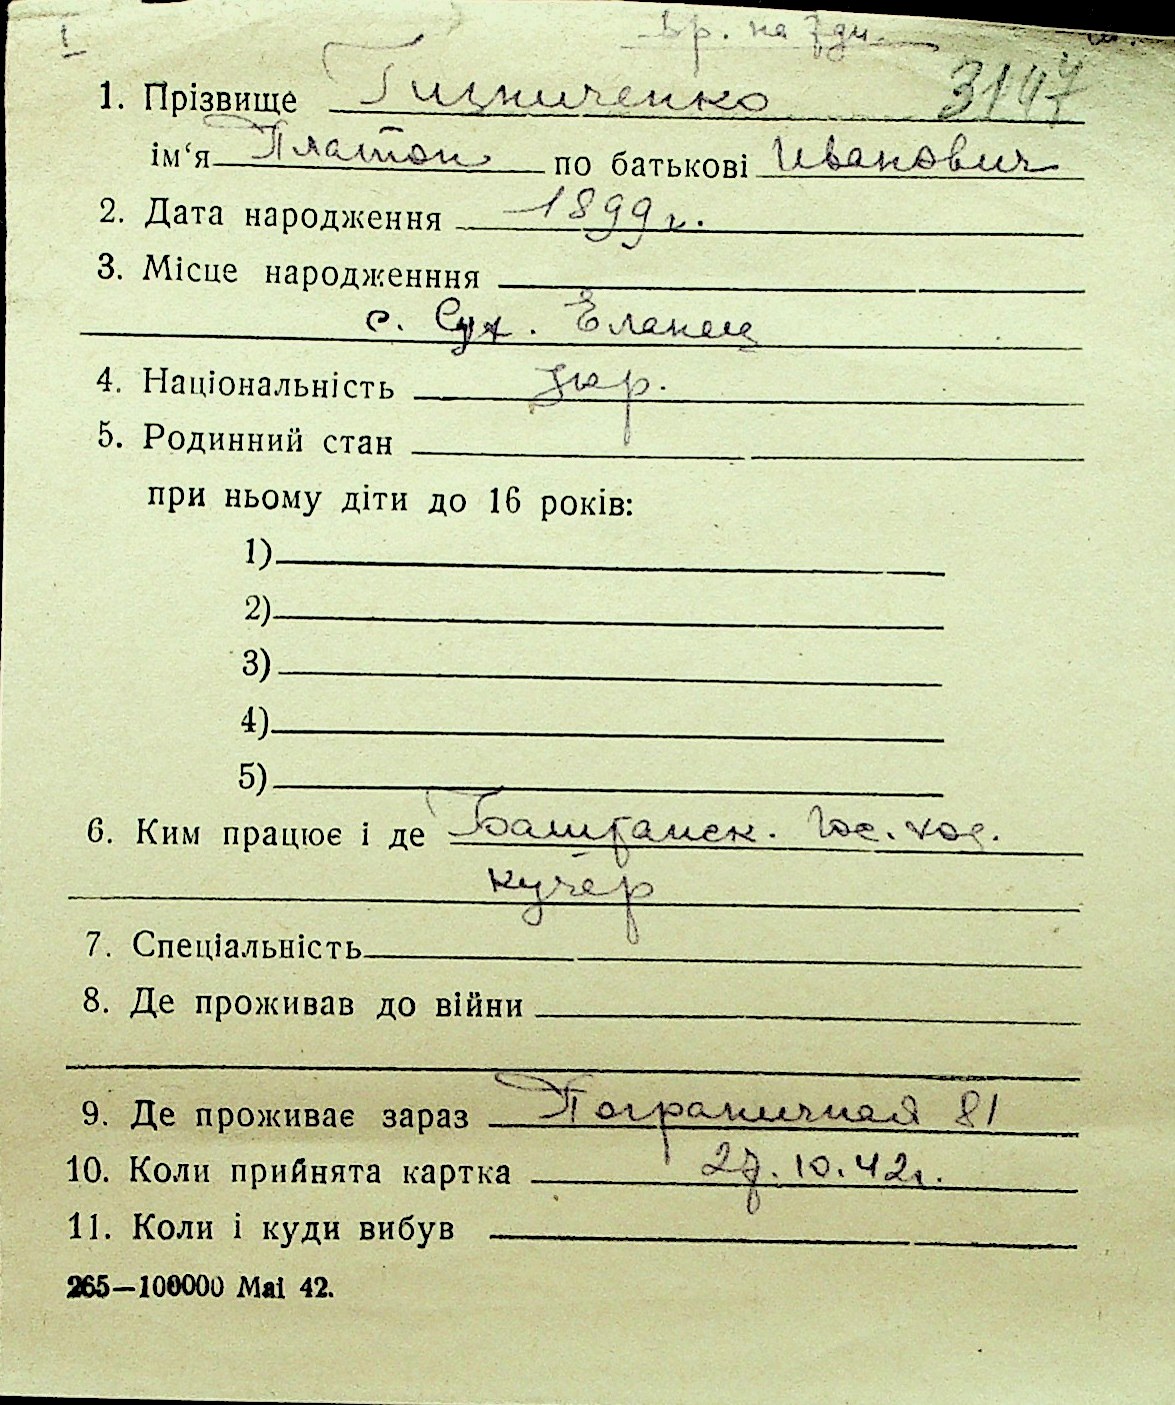 I вр. на 7 дн.
1. Прізвище Гизниченко 3147
ім‘я Платон по батькові Иванович
2. Дата народження 1899 г.
3. Місце народженння
с. Сух. Еланец
4. Національність укр.
5. Родинний стан
при ньому діти до 16 років:
1)
2)
3)
4)
5)
6. Ким працює і де Баштанск. Гос. хоз.
кучер
7. Спеціальність
8. Де проживав до війни
9. Де проживає зараз Пограничная 81
10. Коли прийнята картка 27.10.42г.
11. Коли і куди вибув
265—100000 Mai 42.